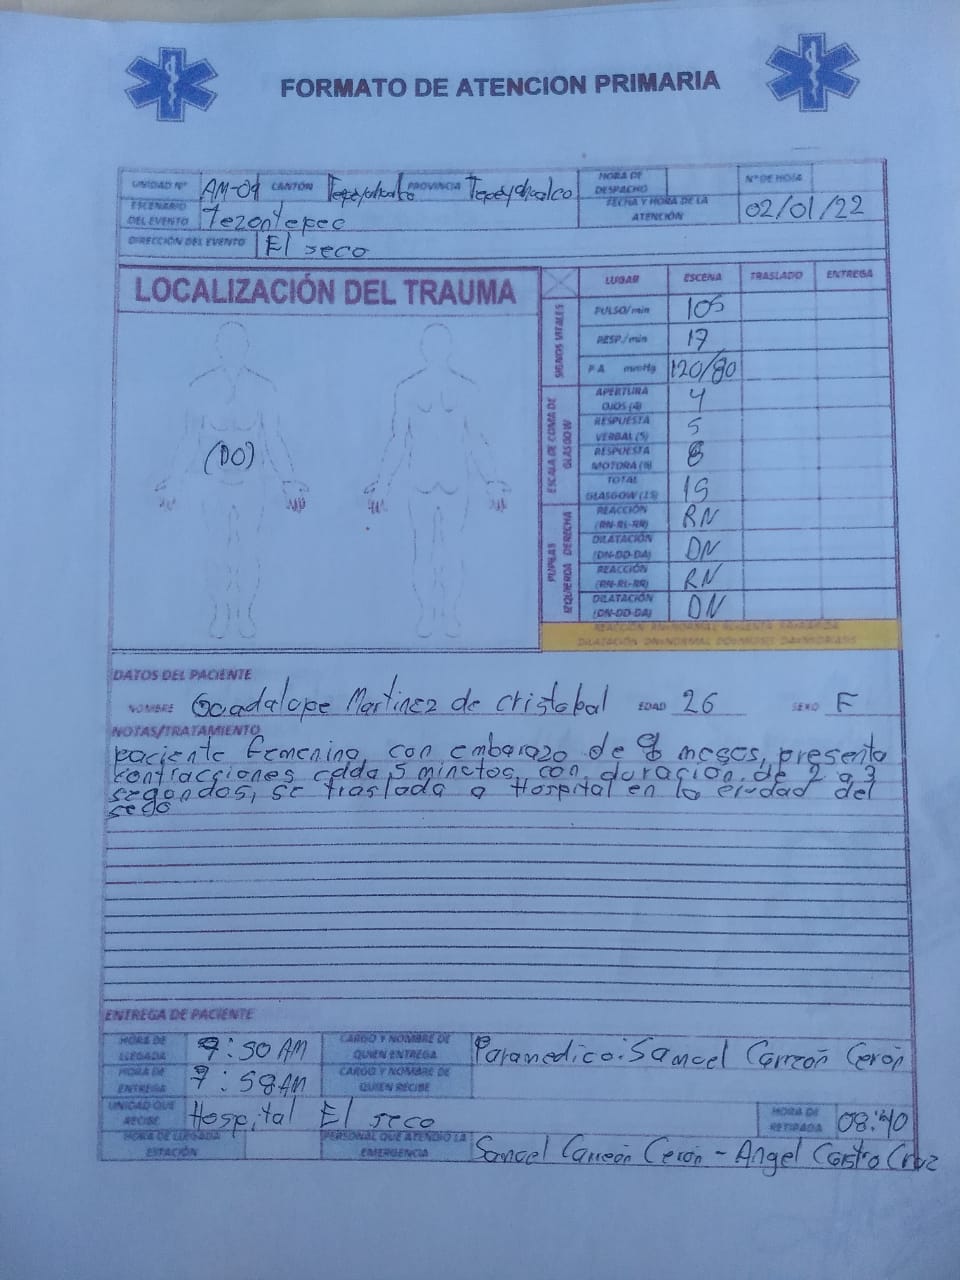 FORMATO DE ATENCION PRIMARIA
UNIDAD N° AM-09 CANTÓN Tepeyahualco PROVINCIA Tepeyahualco HORA DE DESPACHO N° DE HOJA
ESCENARIO DEL EVENTO Tezontepec FECHA Y HORA DE LA ATENCIÓN 02/01/22
DIRECCIÓN DEL EVENTO El seco
LOCALIZACIÓN DEL TRAUMA
(DO)
LUGAR ESCENA TRASLADO ENTREGA
SIGNOS VITALES
PULSO/min 105
RESP./min 17
P.A mmHg 120/80
ESCALA DE COMA DE GLASGOW
APERTURA OJOS (4) 4
RESPUESTA VERBAL (5) 5
RESPUESTA MOTORA (6) 6
TOTAL GLASGOW (15) 15
PUPILAS
DERECHA
REACCIÓN (RN-RL-RR) RN
DILATACIÓN (DN-DD-DA) DN
IZQUIERDA
REACCIÓN (RN-RL-RR) RN
DILATACIÓN (DN-DD-DA) DN
DATOS DEL PACIENTE
NOMBRE Guadalupe Martinez de cristobal EDAD 26 SEXO F
NOTAS/TRATAMIENTO
paciente femenino con embarazo de meses, presenta
contracciones cada 5 minutos, con duración de 2 a 3
segundos, se traslada a Hospital en la ciudad del
seco
ENTREGA DE PACIENTE
HORA DE LLEGADA 7:50 AM CARGO Y NOMBRE DE QUIEN ENTREGA Paramedico: Samuel Carreón Cerón
HORA DE ENTREGA 7:58 AM CARGO Y NOMBRE DE QUIEN RECIBE
UNIDAD QUE RECIBE Hospital El seco HORA DE RETIRADA 08:40
HORA DE LLEGADA ESTACIÓN PERSONAL QUE ATENDIO LA EMERGENCIA Samuel Carreón Cerón - Angel Castro Cruz